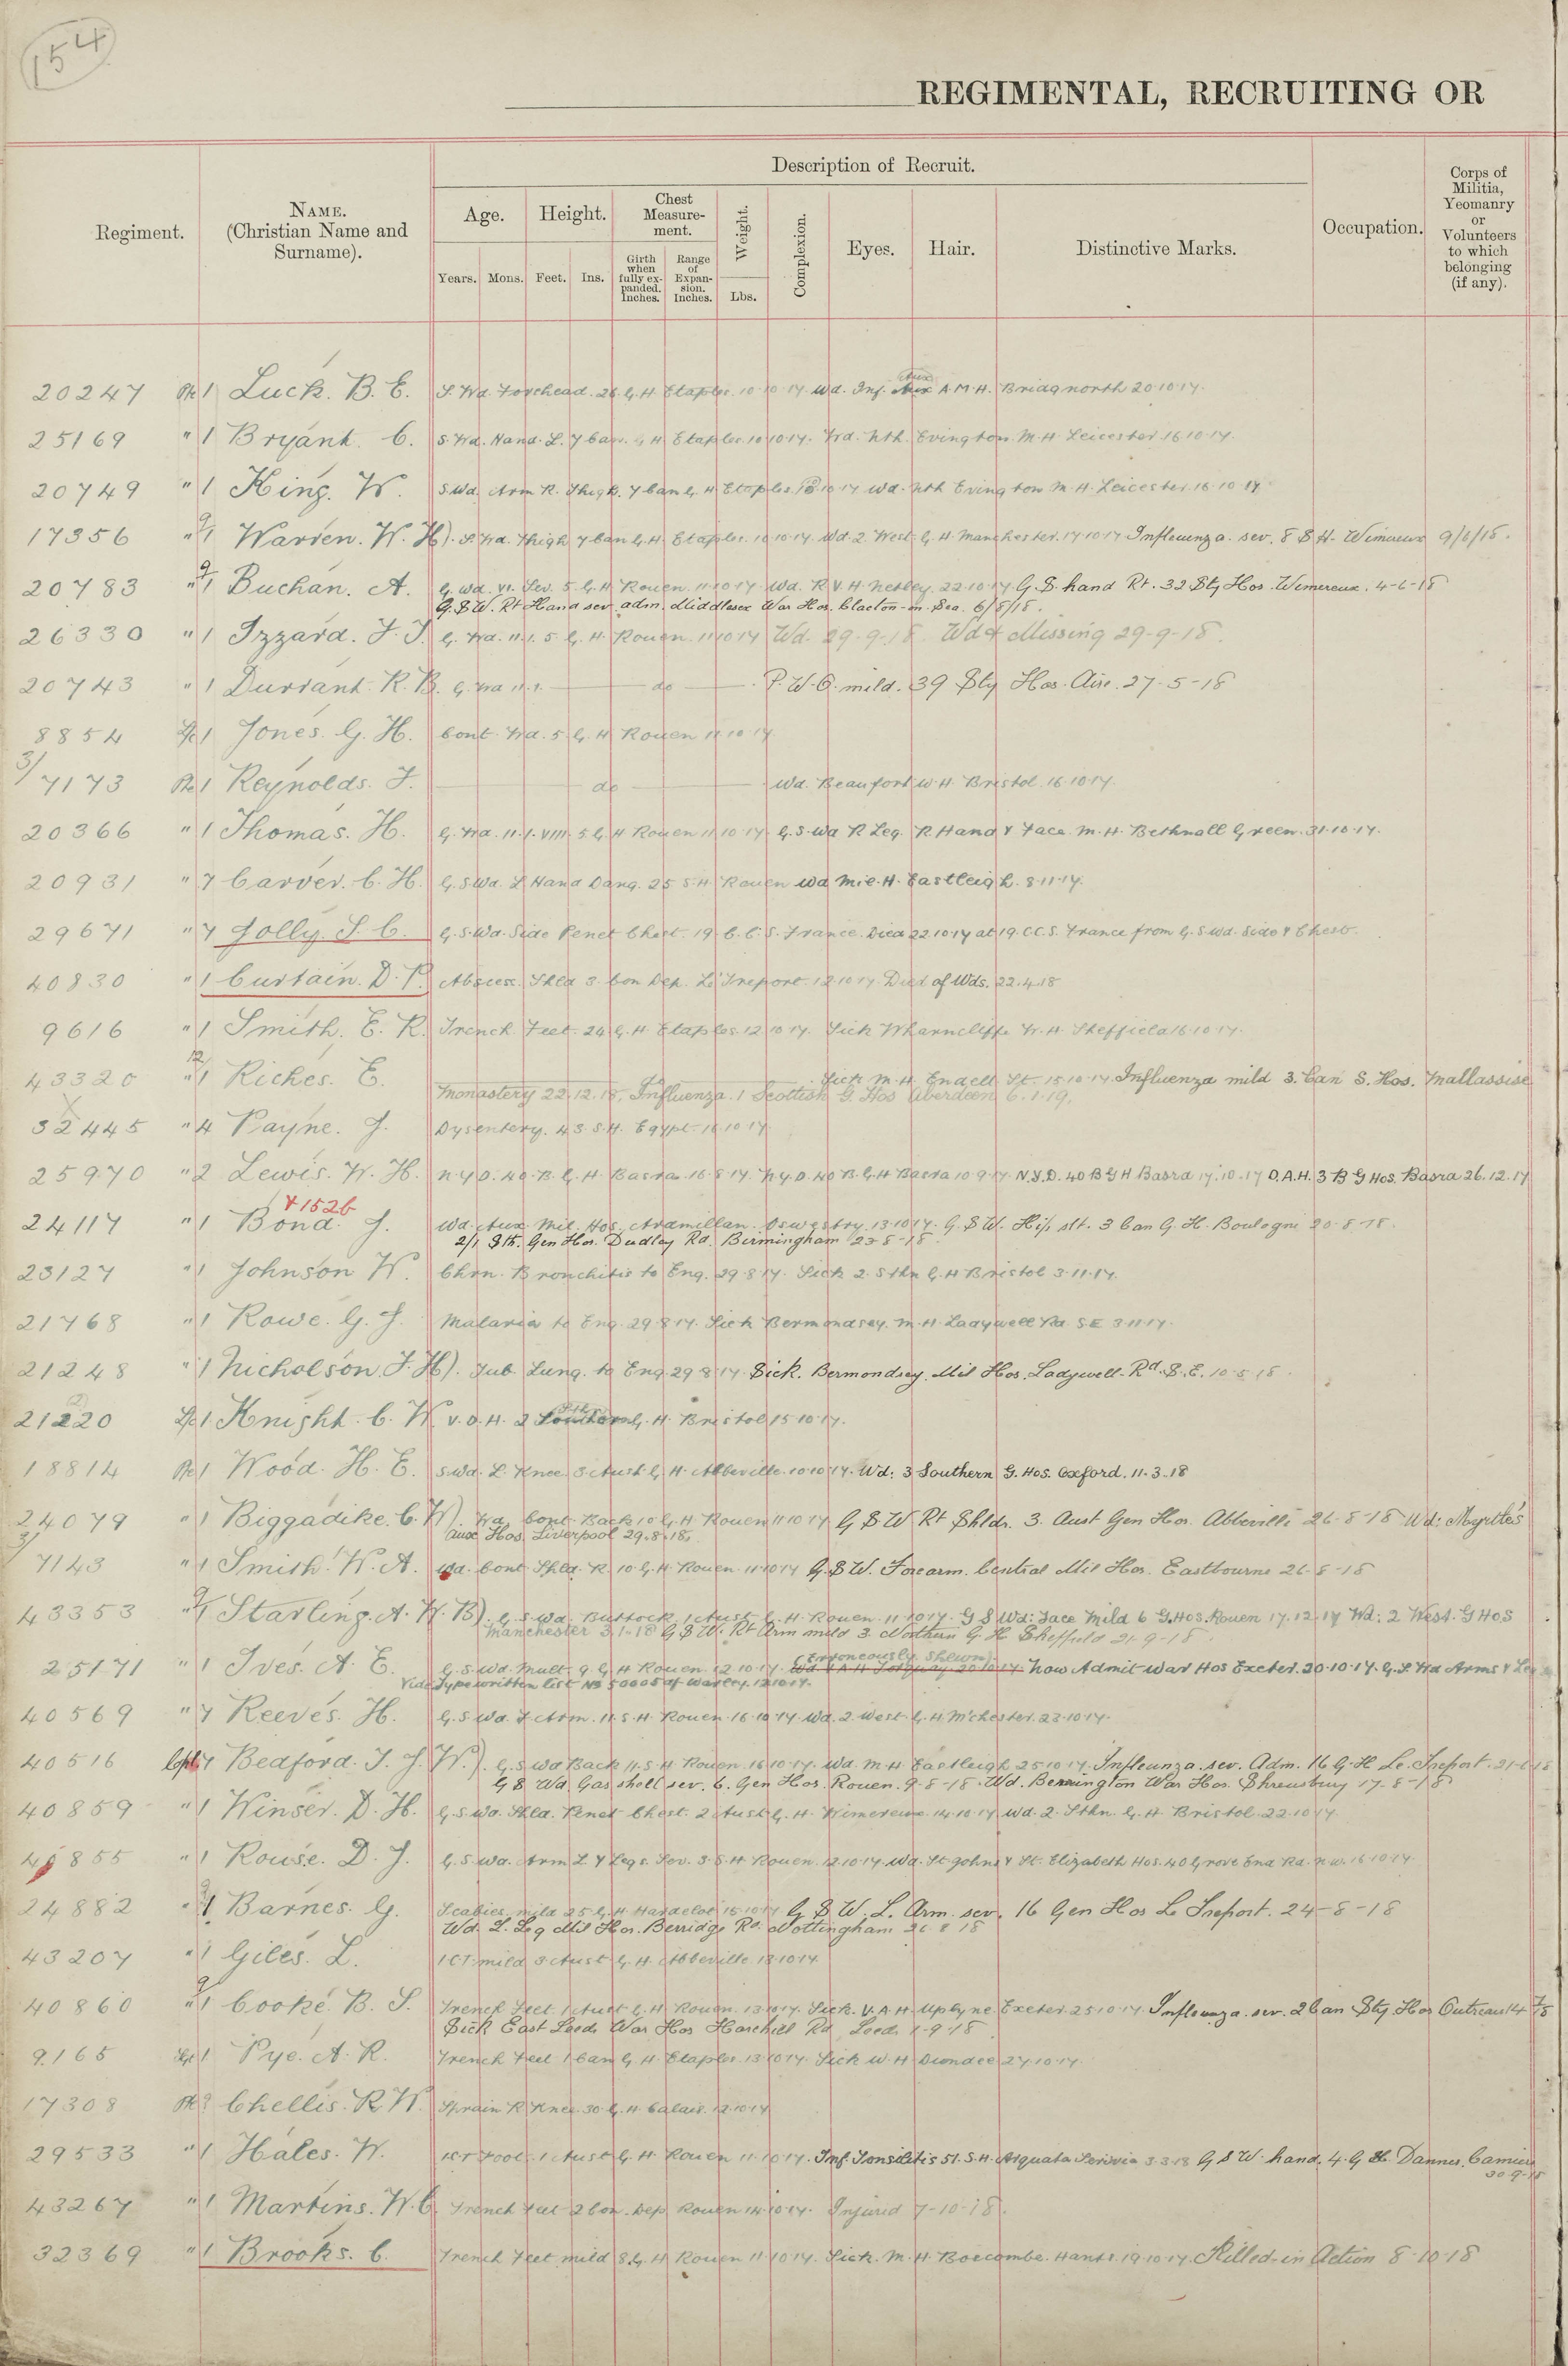 154
REGIMENTAL, RECRUITING OR
Description of Recruit.
Regiment.
NAME.
(Christian Name and
Surname).
Age.
Height.
Chest
Measure-
ment.
Weight.
Complexion.
Eyes.
Hair.
Distinctive Marks.
Occupation.
Corps of
Militia,
Yeomanry
or
Volunteers
to which
belonging
(if any).
Years.
Mons.
Feet.
Ins.
Girth
when
fully ex-
panded.
Inches.
Range
of
Expan-
sion.
Inches.
Lbs.
20247 Pte 1 Luck. B. E. S. Wd. Forehead. 26 G. H. Etaples. 10 10 17. Wd. Inf. Aux A M H. Bridgnorth 20.10.17.
25169 " 1 Bryant. C. S. Wd. Hand. L. 7 Can. G H Etaples 10 10 17. Wd. Nth. Evington. M. H. Leicester 16.10.17.
20749 " 1 King. W. S. Wd. Arm R. Thigh. 7 Can G. H Etaples 10 10 17 Wd. Nth Evington M. H. Leicester 16.10.17
17356 " 9/1 Warren. W. H). S. Wd. Thigh 7 Can G. H. Etaples. 10 10 17. Wd. 2 West. G. H. Manchester. 17 10 17 Influenza. sev. 8 S H. Wimereux 9/6/18.
20783 " 9/1 Buchan. A. G. Wd. VI. Sev. 5 G. H Rouen. 11 10 17. Wd. R. V. H. Netley. 22 10 17 G. S. hand Rt. 32 Sty Hos. Wimereux. 4-6-18
G. S W. Rt Hand sev adm. Middlesex War Hos. Clacton-on-Sea. 6/8/18.
26330 " 1 Izzard. F. J. G. Wd. 11.1. 5 G. H. Rouen. 11 10 17 Wd. 29-9-18. Wd & Missing 29-9-18.
20743 " 1 Durrant. R. B. G. Wd 11.1. do P. U. O. mild. 39 Sty Hos. Aire. 27-5-18
8854 L/c 1 Jones. G. H. Cont. Wd. 5 G. H Rouen 11 10 17
3/7173 Pte 1 Reynolds. F. do Wd. Beaufort W. H. Bristol 16.10.17.
20366 " 1 Thomas. H. G. Wd. 11.1. VIII. 5 G. H Rouen 11 10 17. G. S. Wd R Leg. R Hand & Face. M. H. Bethnall Green. 31.10.17.
20931 " 7 Carver. C. H. G. S Wd. L Hand Dang. 25 S. H Rouen Wd Mil. H. Eastleigh. 8.11.17.
29671 " 7 Jolly. S. C. G. S. Wd. Side Penet Chest. 19. C. C. S. France. Died 22 10 17 at 19. C.C.S. France from G. S. Wd. Side & Chest.
40830 " 1 Curtain. D. P. Abscess. Shld 3. Con Dep. Le Treport. 12 10 17. Died of Wds. 22.4.18
9616 " 1 Smith. E. R. Trench. Feet. 24 G. H. Etaples. 12 10 17. Sick Wharncliffe W. H. Sheffield 16 10 17.
43320 " 12/1 Riches. E. Sick M. H. Endell St. 15 10 17. Influenza mild 3. Can S. Hos. Mallassise
Monastery 22.12.18. Influenza. 1 Scottish G. Hos Aberdeen 6.1.19.
32445 " 4 Payne. J. Dysentery. 43 S. H. Egypt. 16 10 17.
25970 " 2 Lewis. W. H. N Y D. 40. B. G. H Basra. 16.8.17. N. Y. D. 40 B. G. H Basra 10.9.17. N.Y.D. 40 B G H Basra 17.10.17 D.A.H. 3 B G Hos. Basra 26.12.17
& 1526
24117 " 1 Bond. J. Wd. Aux. Mil. Hos. Ardmillan. Oswestry. 13.10.17. G. S W. Hip slt. 3 Can G. H. Boulogne 20-8-18.
2/1 Sth. Gen Hos. Dudley Rd. Birmingham 23-8-18
23127 " 1 Johnson W. Chrn. Bronchitis to Eng. 29.8.17. Sick 2. Sthn G. H Bristol 3.11.17.
21768 " 1 Rowe. G. J. Malaria to Eng. 29.8.17. Sick Bermondsey. M. H. Ladywell Rd. S E 3.11.17.
21248 " 1 Nicholson. F. H). Tub. Lung. to Eng 29 8 17. Sick. Bermondsey. Mil Hos. Ladywell. Rd. S. E. 10.5.18.
21220 L/c 1 Knight. C. W V. D. H. 2 Southern G. H. Bristol 15 10 17.
18814 Pte 1 Wood. H. E. S. Wd. L. Knee. 3 Aust G. H. Abbeville. 10 10 17. Wd: 3 Southern G. Hos. Oxford. 11.3.18
24079 " 1 Biggadike. C. W). Wd. Cont. Back 10 G. H. Rouen 11 10 17 G. S W Rt Shldr. 3. Aust Gen Hos. Abbeville 26-8-18 Wd: Myrtles
Aux Hos. Liverpool 29.8.18.
3/7143 " 1 Smith. W. A. Wd. Cont. Shld. R. 10 G. H. Rouen. 11 10 17 G. S W. Forearm. Central Mil Hos. Eastbourne 26-8-18
43353 " 9/1 Starling. A. W. B). G. S Wd. Buttock. 1 Aust G. H. Rouen. 11 10 17. G S Wd: Face Mild 6 G. Hos. Rouen 17.12.17 Wd: 2 West. G Hos
Manchester 3.1.18 G S W. Rt Arm mild 3. Northern G H Sheffield 21-9-18.
25171 " 1 Ives. A. E. G. S. Wd. Mult. 9. G. H Rouen. 12 10 17. Wd V A H Torquay 20 10 17. (Erroneously shewn) Now Admit War Hos Exeter. 20.10.17. G. S. Wd Arms & Leg
Vide Typewritten list No 50005 of War Off. 12.10.17.
40569 " 7 Reeves. H. G. S Wd. L Arm. 11. S. H. Rouen. 16 10 17. Wd. 2. West. G. H. M'chester. 23.10.17.
40516 Cpl 7 Bedford. T. J. W.). G. S Wd Back 11. S. H Rouen. 16 10 17. Wd. M H Eastleigh 25 10 17. Influenza. sev. Adm. 16 G. H Le Treport. 21-6-18
G S Wd. Gas shell sev. 6. Gen Hos. Rouen. 9-8-18. Wd. Berrington War Hos. Shrewsbury 17-8-18
40859 " 1 Winser. D. H. G. S Wd. Shld. Penet Chest. 2 Aust G. H. Wimereux. 14.10.17. Wd. 2. Sthn. G. H Bristol. 22.10.17.
40855 " 1 Rouse. D. J. G. S. Wd. Arm L & Legs. Sev. 3. S H Rouen. 12.10.17. Wd. St Johns & St. Elizabeth Hos. 40 Grove End Rd. N.W. 16 10 17
24882 " 1 Barnes. G. Scabies. mild 25 G. H Hardelot 15 10 17 G S W. L. Arm. sev. 16 Gen Hos Le Treport. 24-8-18
Wd. L. Leg Mil Hos. Berridge Rd. Nottingham 26 8 18
43207 " 1 Giles. L. I C T mild 3 Aust G. H. Abbeville. 13 10 17.
40860 " 9/1 Cooke. B. S. Trench Feet 1 Aust G. H Rouen. 13 10 17. Sick. V. A. H. Uplyne Exeter. 25 10 17. Influenza. sev. 2 Can Sty Hos Outreau
Sick East Leeds War Hos Harehill Rd. Leeds 1-9-18
9165 Sgt 1 Pye. A. R. Trench Feet 1 Can G. H. Etaples. 13 10 17. Sick W. H Dundee 27.10.17.
17308 Pte Chellis. R W. Sprain R Knee 30 G. H. Calais. 12.10.17
29533 " 1 Hales. W. ICT Foot. 1 Aust G. H. Rouen 11.10.17. Inf. Tonsilitis 51. S. H. Arquata Scrivia 3.3.18 G S W. hand. 4. G H. Dannes. Camiers
30-9-18
43267 " 1 Martins. W. C. Trench Feet 2 Con. Dep Rouen 14.10.17. Injured 7-10-18.
32369 " 1 Brooks. C. Trench Feet mild 8 G. H Rouen 11.10.17. Sick. M. H. Boscombe. Hants. 19 10 17. Killed-in Action 8-10-18